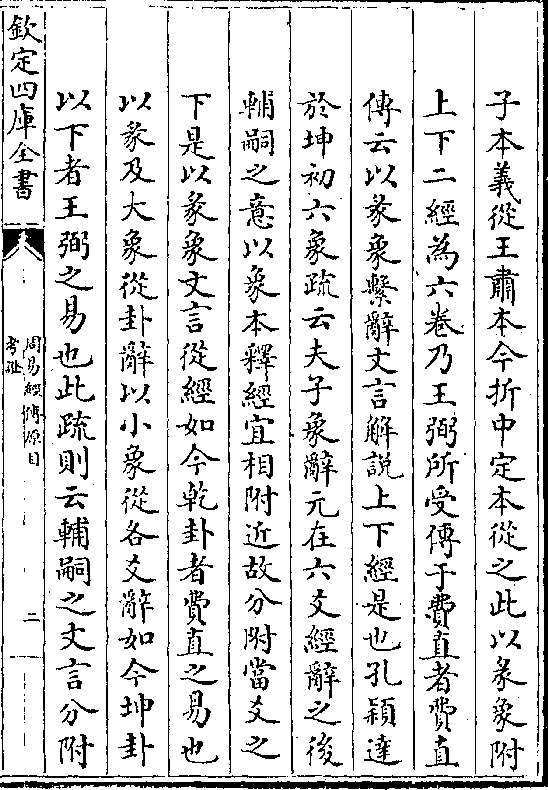 子本義從王肅本今折中定本從之此以彖象附
上下二經為六卷乃王弼所受傳于費直者費直
傳云以彖象繫辭文言解說上下經是也孔穎達
於坤初六象疏云夫子象辭元在六爻經辭之後
輔嗣之意以象本釋經宜相附近故分附當爻之
下是以彖象文言從經如今乾卦者費直之易也
以彖及大象從卦辭以小象從各爻辭如今坤卦
以下者王弼之易也此疏則云輔嗣之文言分附
欽定四庫全書
周易經傳源目
考証
二